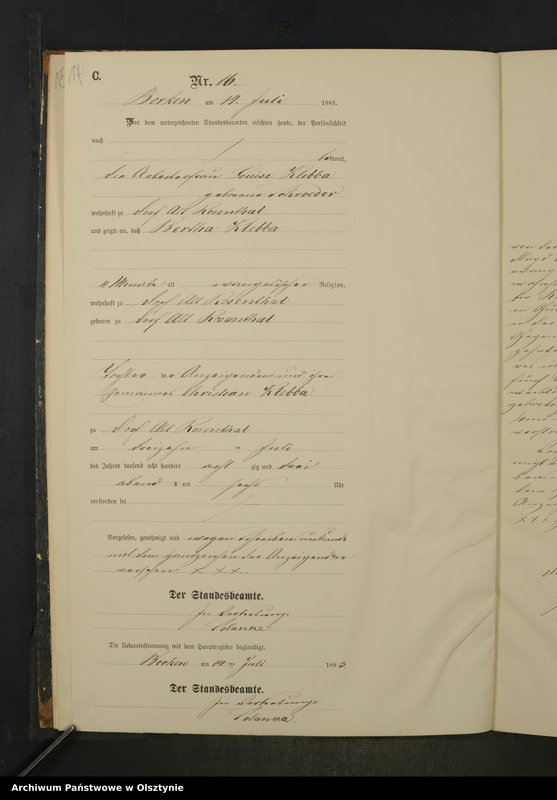 C.
Nr. 16.
Borken am 14. Juli 1883.
Vor dem unterzeichneten Standesbeamten erschien heute, der Persönlichkeit
nach
bekannt,
die Arbeiterfrau Louise Klebba
geborene Schroeder
wohnhaft zu Dorf Alt Rosenthal
und zeigte an, daß Bertha Klebba
4 Monate alt evangelischer Religion,
wohnhaft zu Dorf Alt Rosenthal
geboren zu Dorf Alt Rosenthal
Tochter der Anzeigenden und ihres
Ehemannes Christian Klebba
zu Dorf Alt Rosenthal
am dreizehn ten Juli
des Jahres tausend acht hundert acht zig und drei
abend s um sechs Uhr
verstorben sei
Vorgelesen, genehmigt und wegen Schreibensunkunde
mit dem Handzeichen der Anzeigenden
versehen + + +.
Der Standesbeamte.
In Vertretung
Solanka
Die Uebereinstimmung mit dem Hauptregister beglaubigt.
Borken am 14 ten Juli 1883
Der Standesbeamte.
In Vertretung
Solanka.
Archiwum Państwowe w Olsztynie